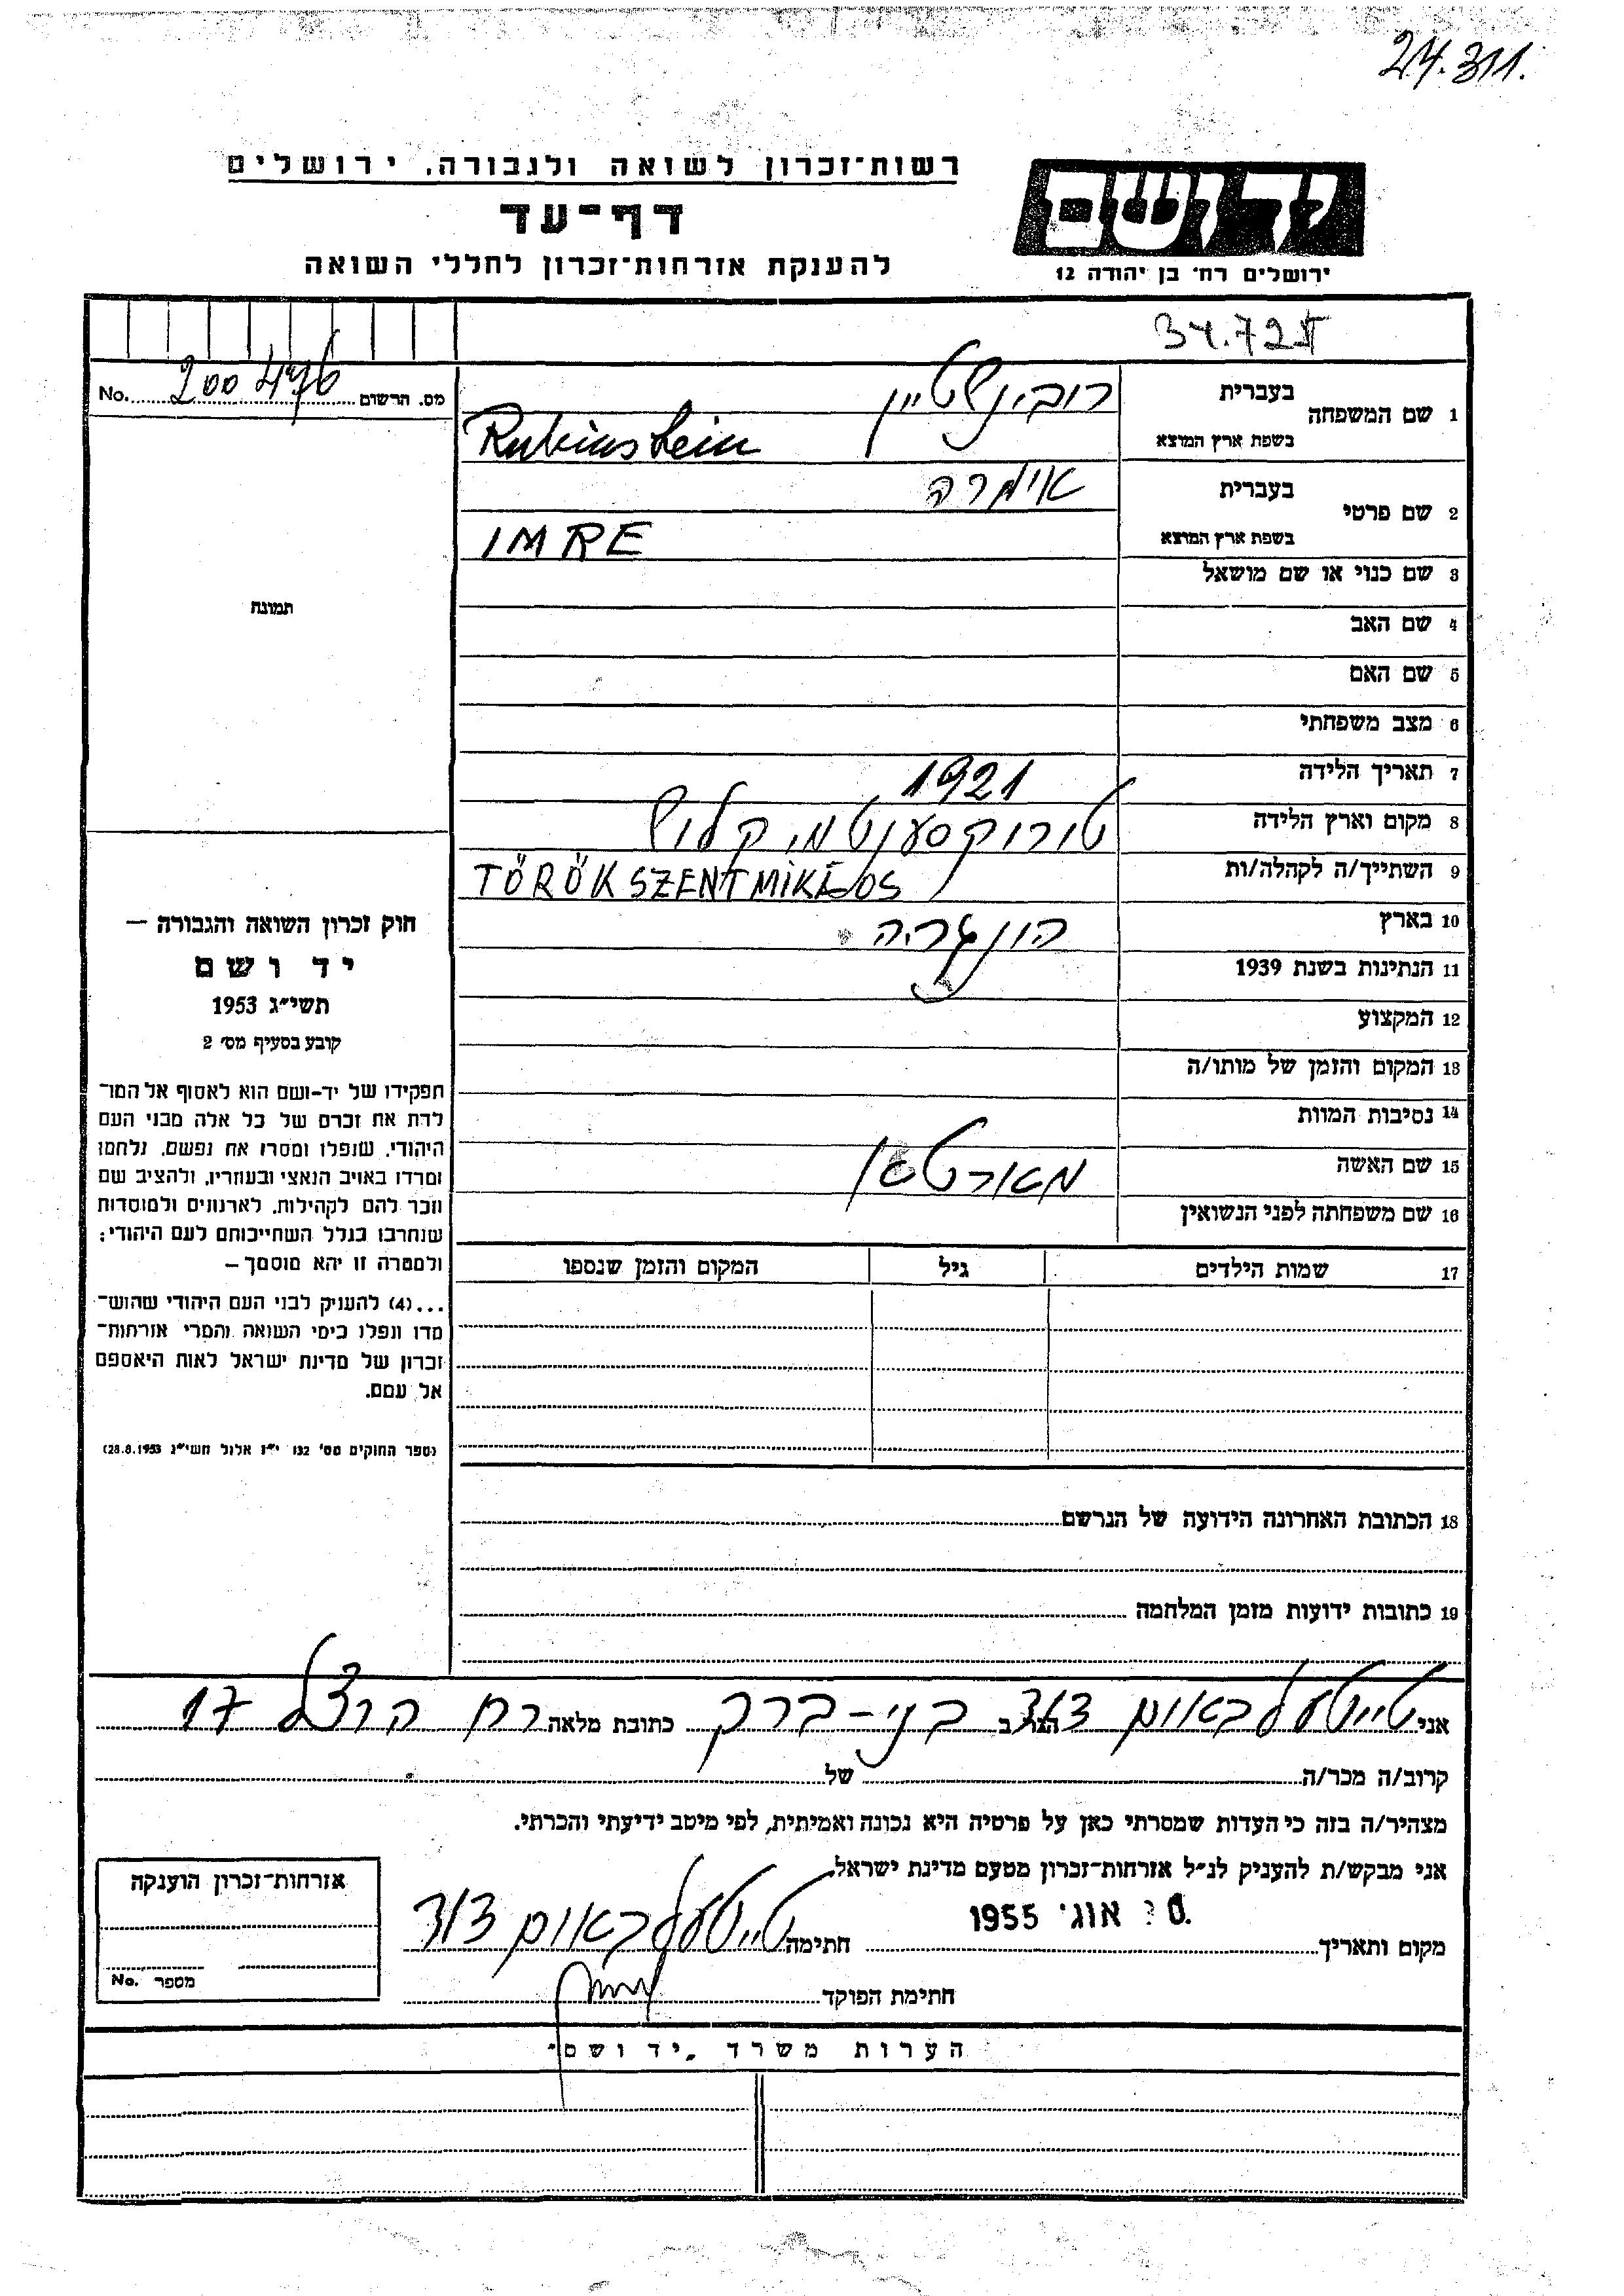 24.311.
רשות-זכרון לשואה ולגבורה, ירושלים
דף-עד
להענקת אזרחות-זכרון לחללי השואה
ידושם
ירושלים רח' בן יהודה 12
מס. הרשום 200476 No.
1 שם המשפחה
בעברית רובינשטיין
בשפת ארץ המוצא Rubinstein
2 שם פרטי
בעברית אימרה
בשפת ארץ המוצא IMRE
3 שם כנוי או שם מושאל
4 שם האב
5 שם האם
6 מצב משפחתי
7 תאריך הלידה 1921
8 מקום וארץ הלידה טורוקסענטמיקלוש
9 השתייך/ה לקהלה/ות TÖRÖKSZENTMIKLOS
10 בארץ הונגריה
11 הנתינות בשנת 1939
12 המקצוע
13 המקום והזמן של מותו/ה
14 נסיבות המוות
15 שם האשה
16 שם משפחתה לפני הנשואין
17 שמות הילדים גיל המקום והזמן שנספו
18 הכתובת האחרונה הידועה של הנרשם
19 כתובות ידועות מזמן המלחמה
תמונה
חוק זכרון השואה והגבורה –
יד ושם
תשי"ג 1953
קובע בסעיף מס' 2
תפקידו של יד-ושם הוא לאסוף אל המו-
לדת את זכרם של כל אלה מבני העם
היהודי, שנפלו ומסרו את נפשם, נלחמו
ומרדו באויב הנאצי ובעוזריו, ולהציב שם
וזכר להם לקהילות, לארגונים ולמוסדות
שנחרבו בגלל השתייכותם לעם היהודי;
ולמטרה זו יהא מוסמך –
...(4) להעניק לבני העם היהודי שהוש-
מדו ונפלו בימי השואה והמרי אזרחות-
זכרון של מדינת ישראל לאות היאספם
אל עמם.
(ספר החוקים מס' 132 י"ז אלול תשי"ג 28.8.1953)
אני טייטעלבאום דוד הגר ב בני-ברק כתובת מלאה רח הרצל 17
קרוב/ה מכר/ה של
מצהיר/ה בזה כי העדות שמסרתי כאן על פרטיה היא נכונה ואמיתית, לפי מיטב ידיעתי והכרתי.
אני מבקש/ת להעניק לנ"ל אזרחות-זכרון מטעם מדינת ישראל.
אוג' 1955
מקום ותאריך חתימה טייטעלבאום דוד
חתימת הפוקד
אזרחות-זכרון הוענקה
מספר No.
הערות משרד "יד ושם"